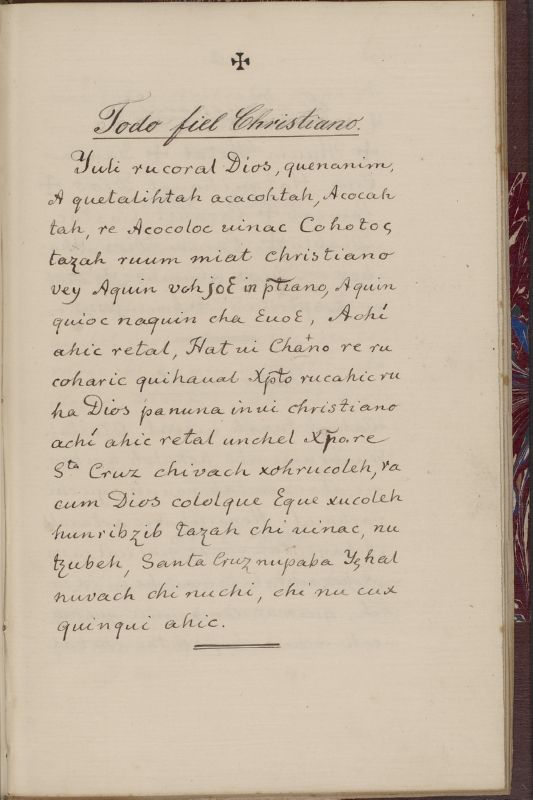 ✠
Todo fiel Christiano.
Yuli rucoral Dios, quenanim,
A quetalihtah acacohtah, Acocah
tah, re Acocoloc uinac Cohotoç
tazah ruum miat christiano
vey Aquin voh joƐ in p̄tiano, Aquin
quioc naquin cha ƐuoƐ, Achí
ahic retal, Hat ui Cha+no re ru
coharic quihaual Xp̄to rucahic ru
ha Dios panuna inui christiano
achí ahic retal unchel Xp̄o re
Sta Cruz chivach xohrucoleh, ra
cum Dios cololque Ɛque xucoleh
hunribzib tazah chi uinac, nu
tzubeh, Santa Cruz nupaba Yçhal
nuvach chi nuchi, chi nu cux
quinqui ahic.